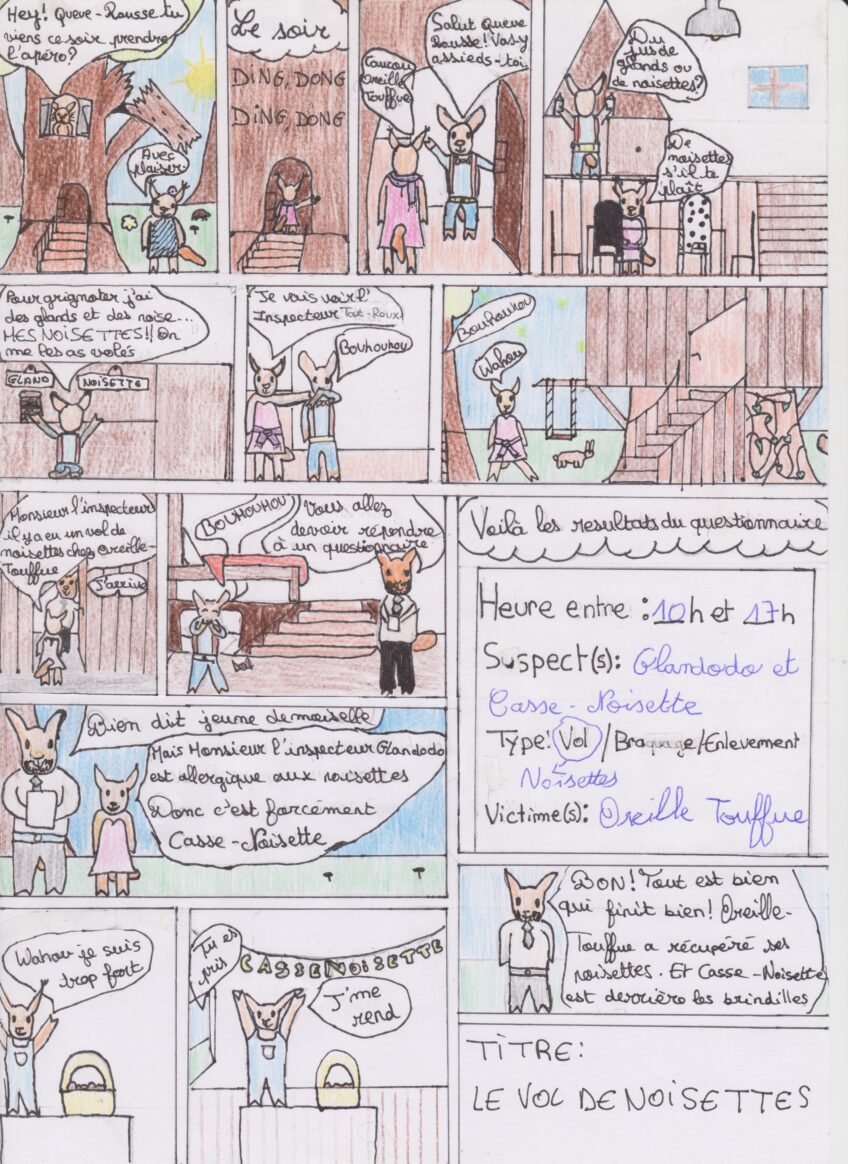 Hey! Queue-Rousse tu
viens ce soir prendre
l'apéro?
Avec
plaisir
Le soir
DING, DONG
DING, DONG
Coucou
Oreille
Touffue
Salut Queue
Rousse! Vas-y
assieds-toi
Du
jus de
glands ou
de noisettes?
De
noisettes
s'il te
plaît
Pour grignoter j'ai
des glands et des noise...
MES NOISETTES!! On
me les as volés
GLAND
NOISETTE
Je vais voir l'
Inspecteur Tout-Roux!
BOUHOUHOU
BOUHOUHOU
Wahou
Monsieur l'inspecteur
il y a eu un vol de
noisettes chez Oreille-
Touffue
J'arrive
BOUHOUHOU
Vous allez
devoir répendre
à un questionnaire
Voilà les resultats du questionnaire
Heure entre : 10h et 17h
Suspect(s): Glandodo et
Casse-Noisette
Type: Vol / Braquage/Enlevement
Noisettes
Victime(s): Oreille Touffue
Bien dit jeune demoiselle
Mais Monsieur l'inspecteur Glandodo
est allergique aux noisettes
Donc c'est forcément
Casse-Noisette
Wahou je suis
trop fort
Tu es
pris
CASSE NOISETTE
J'me
rend
BON! Tout est bien
qui finit bien! Oreille-
Touffue a récupéré ses
noisettes. Et Casse-Noisette
est derrière los brindilles
TITRE:
LE VOL DE NOISETTES